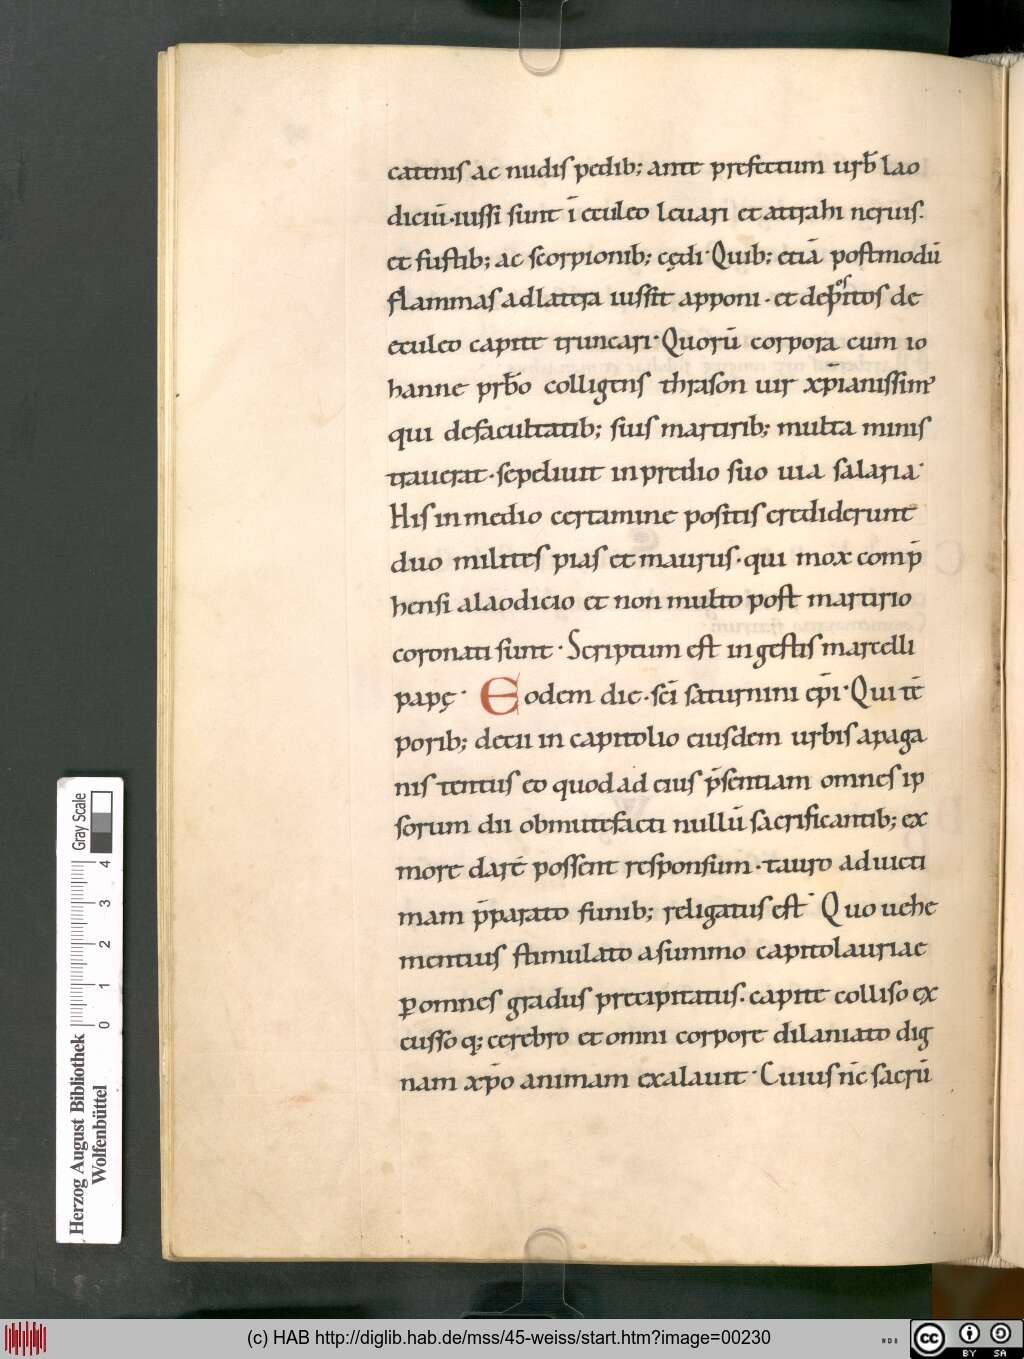 catenis ac nudis pedib; ante prefectum urb̄ Lao
diciū. iussi sunt ī eculeo leuari et attrahi neruis.
et fustib; ac scorpionib; cędi. Quib; etiā postmodū
flammas ad latera iussit apponi. et dep̄sitos de
eculeo capite truncari. Quorū corpora cum io
hanne prb̄o colligens thrason uir xp̄ianissim᾽
qui de facultatib; suis martirib; multa minis
trauerat. sepeliuit in predio suo uia salaria.
His in medio certamine positis crediderunt
duo milites pias et maurus. qui mox comp̄
hensi a laodicio et non multo post martirio
coronati sunt. Scriptum est in gestis marcelli
papę. Eodem die. scī saturnini ep̄i. Qui tē
porib; decii in capitolio eiusdem urbis a paga
nis tentus eo quod ad eius p̄sentiam omnes ip
sorum dii obmutefacti nullū sacrificantib; ex
more darē possent responsum. tauro ad uicti
mam p̄parato funib; religatus est. Quo uehe
mentius stimulato a summo capitolii auriae
ꝑ omnes gradus precipitatus. capite colliso ex
cusso q; cerebro et omni corpore dilaniato dig
nam xp̄o animam exalauit. Cuius nc̄ sacrū
Gray Scale
0 1 2 3 4
Herzog August Bibliothek
Wolfenbüttel
(c) HAB http://diglib.hab.de/mss/45-weiss/start.htm?image=00230
cc BY SA